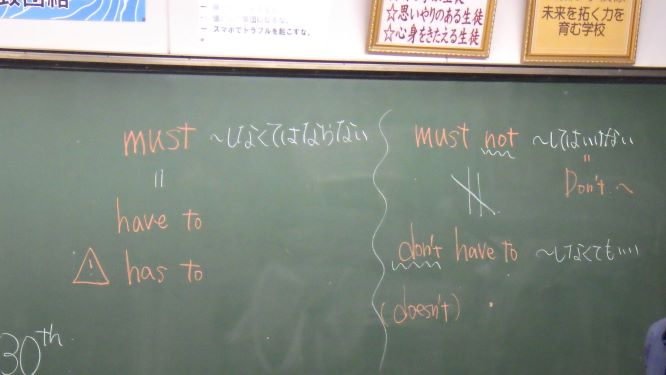 スマホでトラブルを起こすな。
☆思いやりのある生徒
☆心身をきたえる生徒
未来を拓く力を
育む学校
must ～しなくてはならない
||
have to
⚠ has to
30th
must not ～してはいけない
||
Don't ～
don't have to ～しなくてもいい
(doesn't)